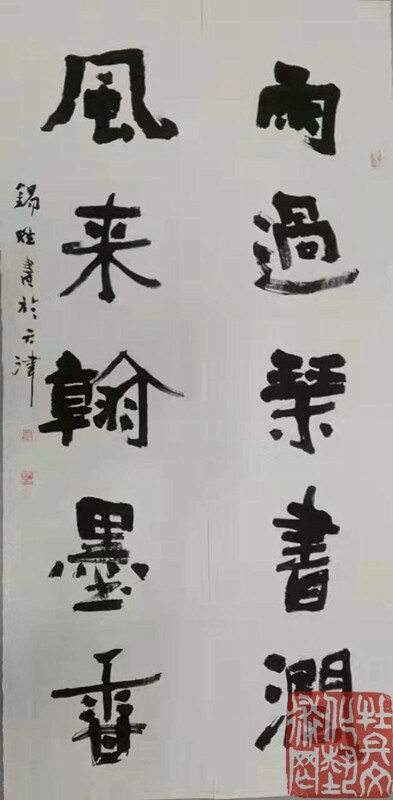 雨過琴書潤
風来翰墨香
錫胜書於天津